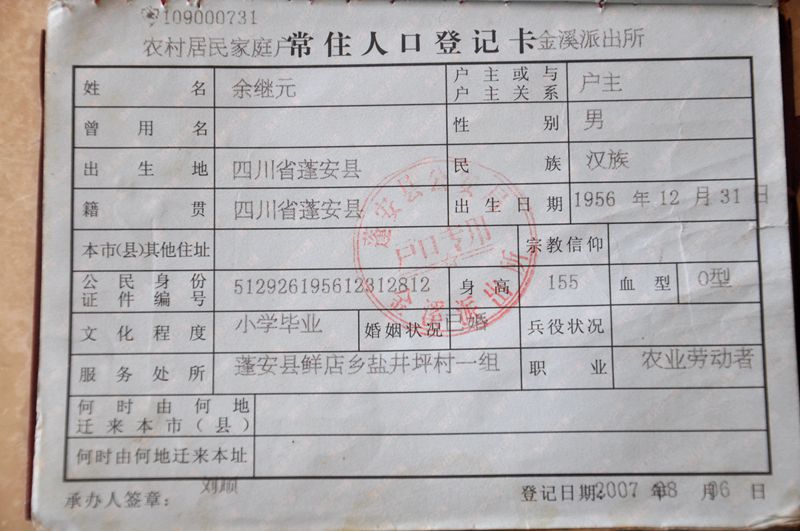 109000731
农村居民家庭户 常住人口登记卡 金溪派出所
姓名 余继元 户主或与户主关系 户主
曾用名 性别 男
出生地 四川省蓬安县 民族 汉族
籍贯 四川省蓬安县 出生日期 1956 年 12 月 31 日
本市(县)其他住址 宗教信仰
公民身份证件编号 512926195612312812 身高 155 血型 O型
文化程度 小学毕业 婚姻状况 已婚 兵役状况
服务处所 蓬安县鲜店乡盐井坪村一组 职业 农业劳动者
何时由何地迁来本市(县)
何时由何地迁来本址
承办人签章: 刘顺 登记日期: 2007 年 08 月 06 日
蓬安县公安局
户口专用
金溪派出所